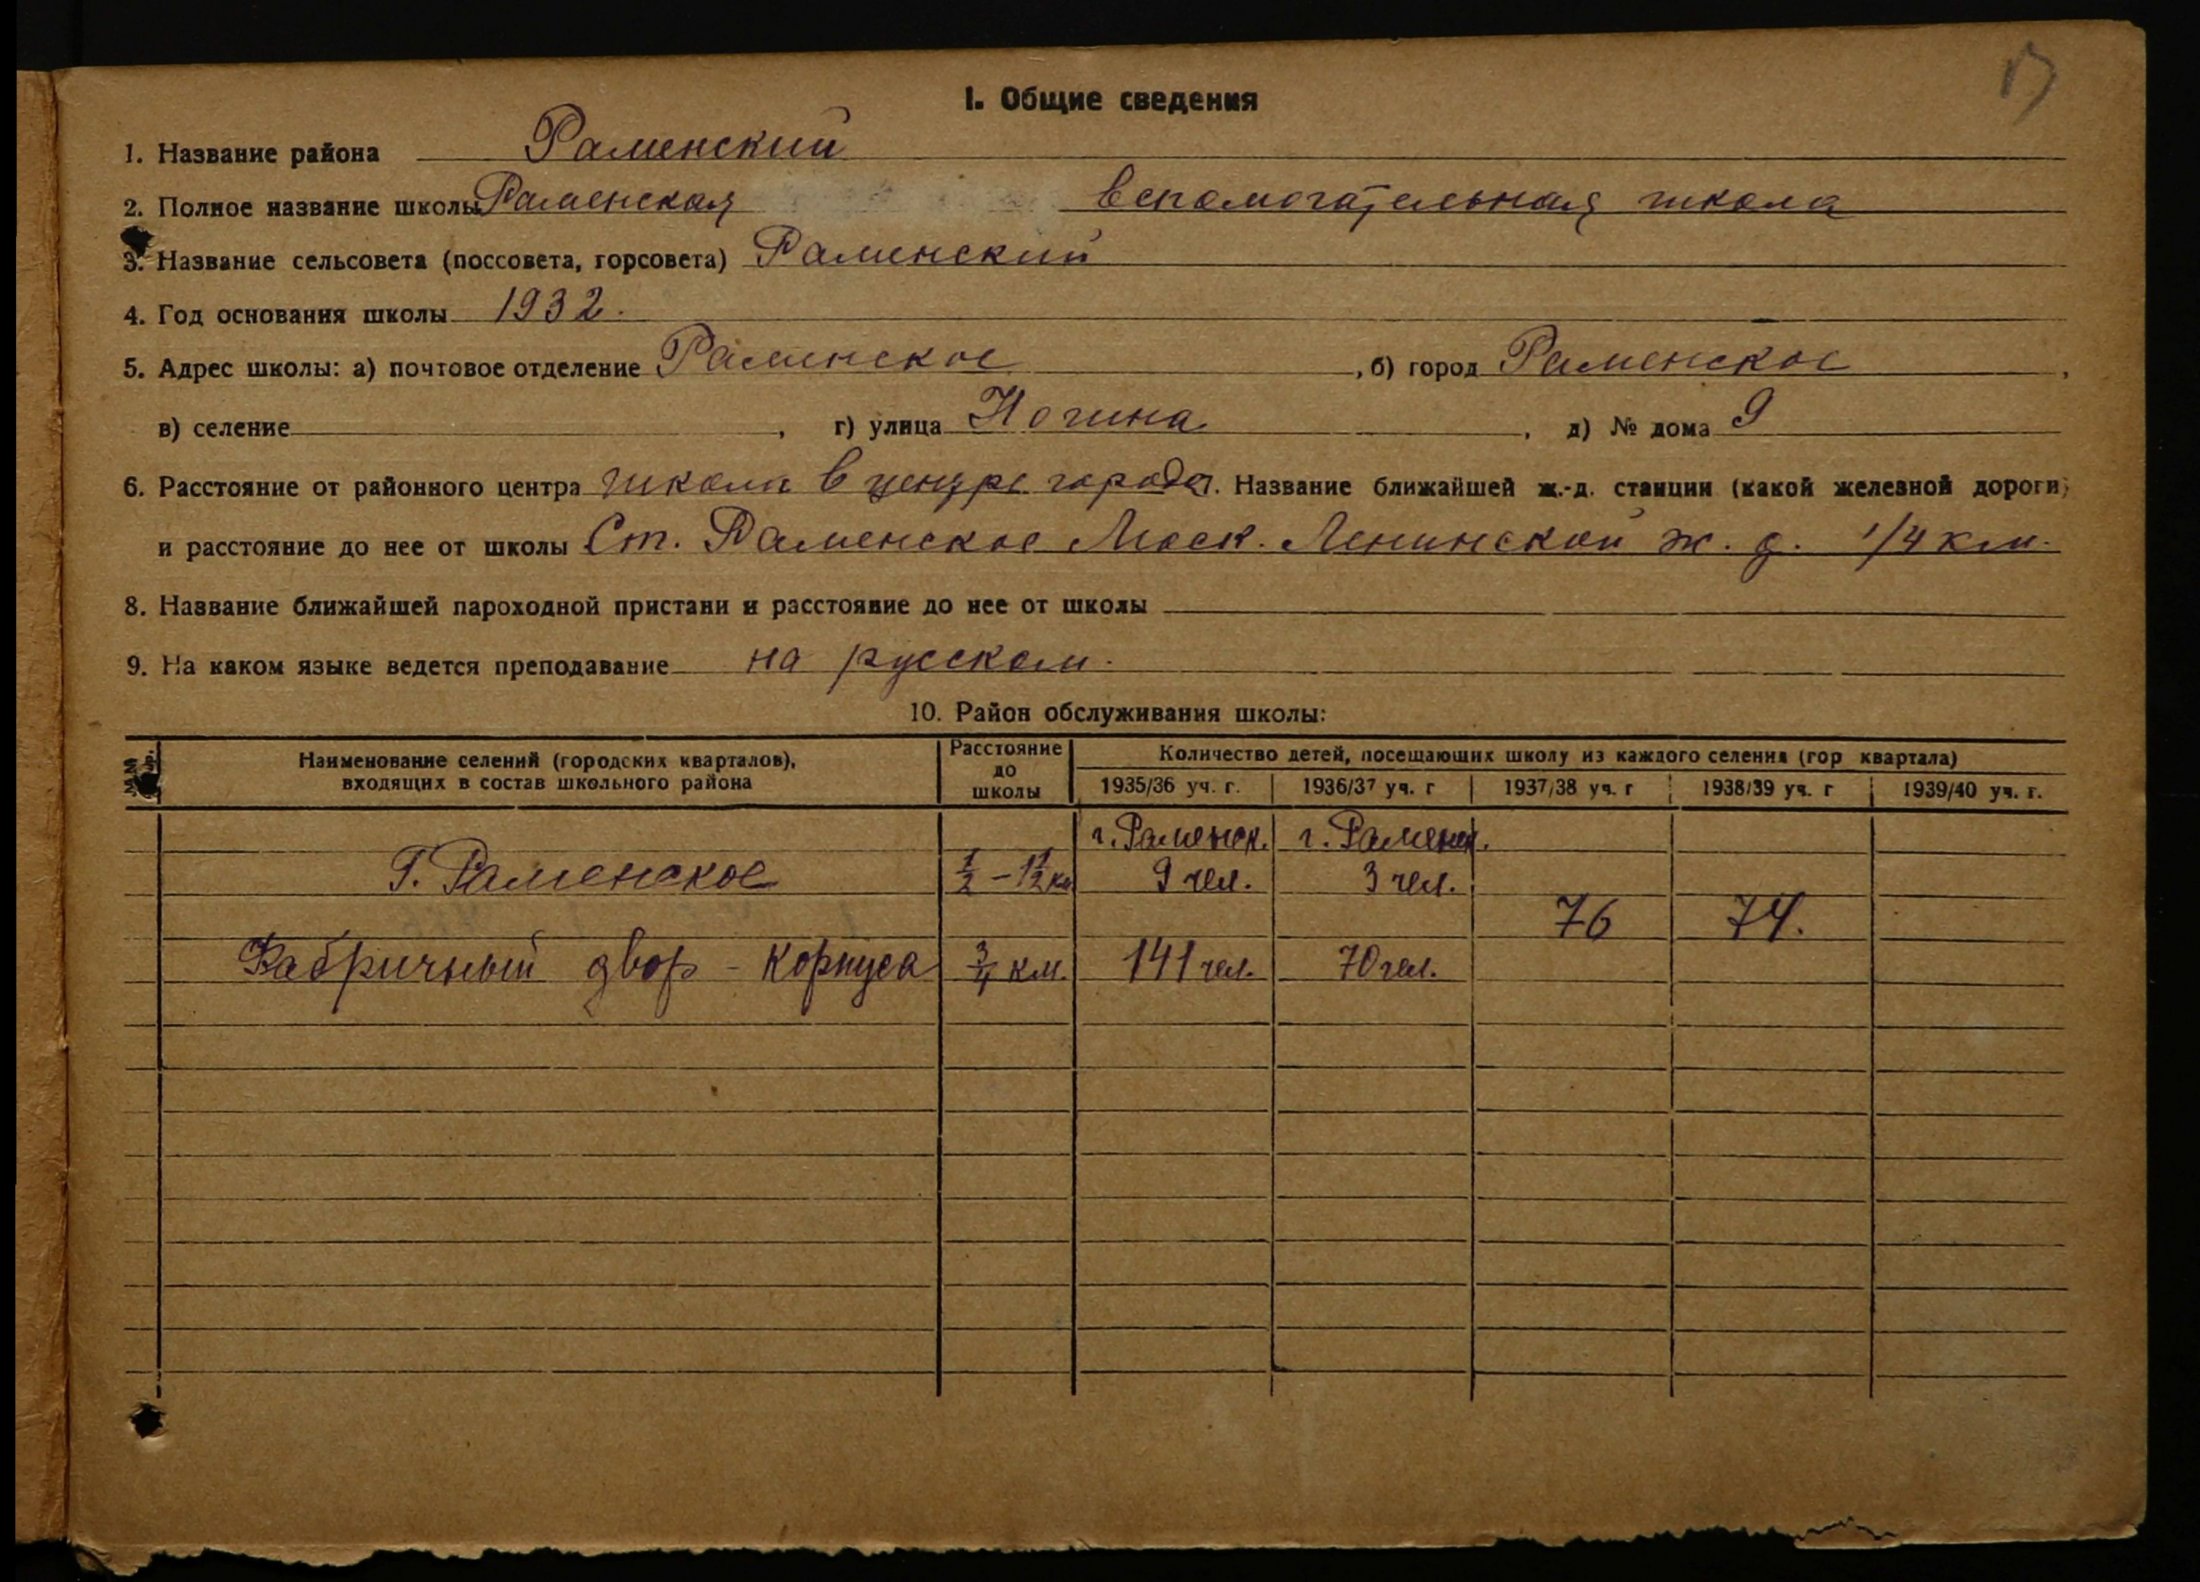 I. Общие сведения
1. Название района Раменский
2. Полное название школы Раменская вспомогательная школа
3. Название сельсовета (поссовета, горсовета) Раменский
4. Год основания школы 1932.
5. Адрес школы: а) почтовое отделение Раменское, б) город Раменское,
в) селение , г) улица Ногина, д) № дома 9
6. Расстояние от районного центра школа в центре города. Название ближайшей ж.-д. станции (какой железной дороги)
и расстояние до нее от школы Ст. Раменское Моск. Ленинской ж. д. 1/4 км.
8. Название ближайшей пароходной пристани и расстояние до нее от школы
9. На каком языке ведется преподавание на русском.
10. Район обслуживания школы:
Наименование селений (городских кварталов), входящих в состав школьного района
Расстояние до школы
Количество детей, посещающих школу из каждого селения (гор квартала)
1935/36 уч. г. 1936/37 уч. г 1937/38 уч. г 1938/39 уч. г 1939/40 уч. г.
г. Раменск. г. Раменск.
Г. Раменское 1/2 – 1 1/2 км 9 чел. 3 чел.
76 74.
Фабричный двор – корпуса 3/4 км. 141 чел. 70 чел.